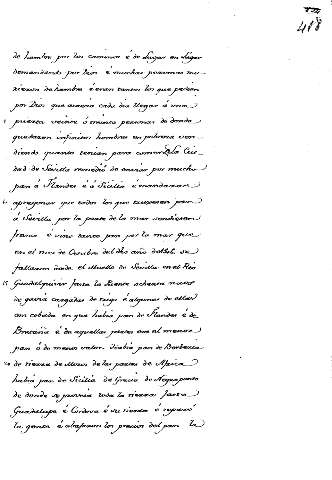 418
de hambre por los caminos é de Lugar en Lugar
demandando por Dios é muchas personas mu-
rieron de hambre é eran tantos los que pedian
por Dios que acaecia cada dia llegar á una
puerta veinte ó treinta personas de donde
quedaron infinitos hombres en pobreza ven-
diendo quanto tenian para comer. La Ciu-
dad de Sevilla remedió de enviar por mucho
pan á Flandes é á Sicilia é mandaron
apregonar que todos los que truxesen pan
á Sevilla por la parte de la mar vendiesen
franco é vino tanto pan por la mar que
en el mes de Octubre del dho año se
fallaron desde el Muelle de Sevilla en el Rio
Guadalquivir fasta la ochenta naves
de gavia cargadas de trigo é algunas de ellas
con cebada en que habia pan de Flandes é de
Bretaña é de aquellas partes era el menos
pan é de menos valor. Habia pan de Berberia
de tierra de Moros de las partes de Africa
habia pan de Sicilia de Grecia de Negroponto
de donde se toda la tierra fasta
Guadalupe é Cordova é su tierra é
la gente é abaxaron los precios del pan